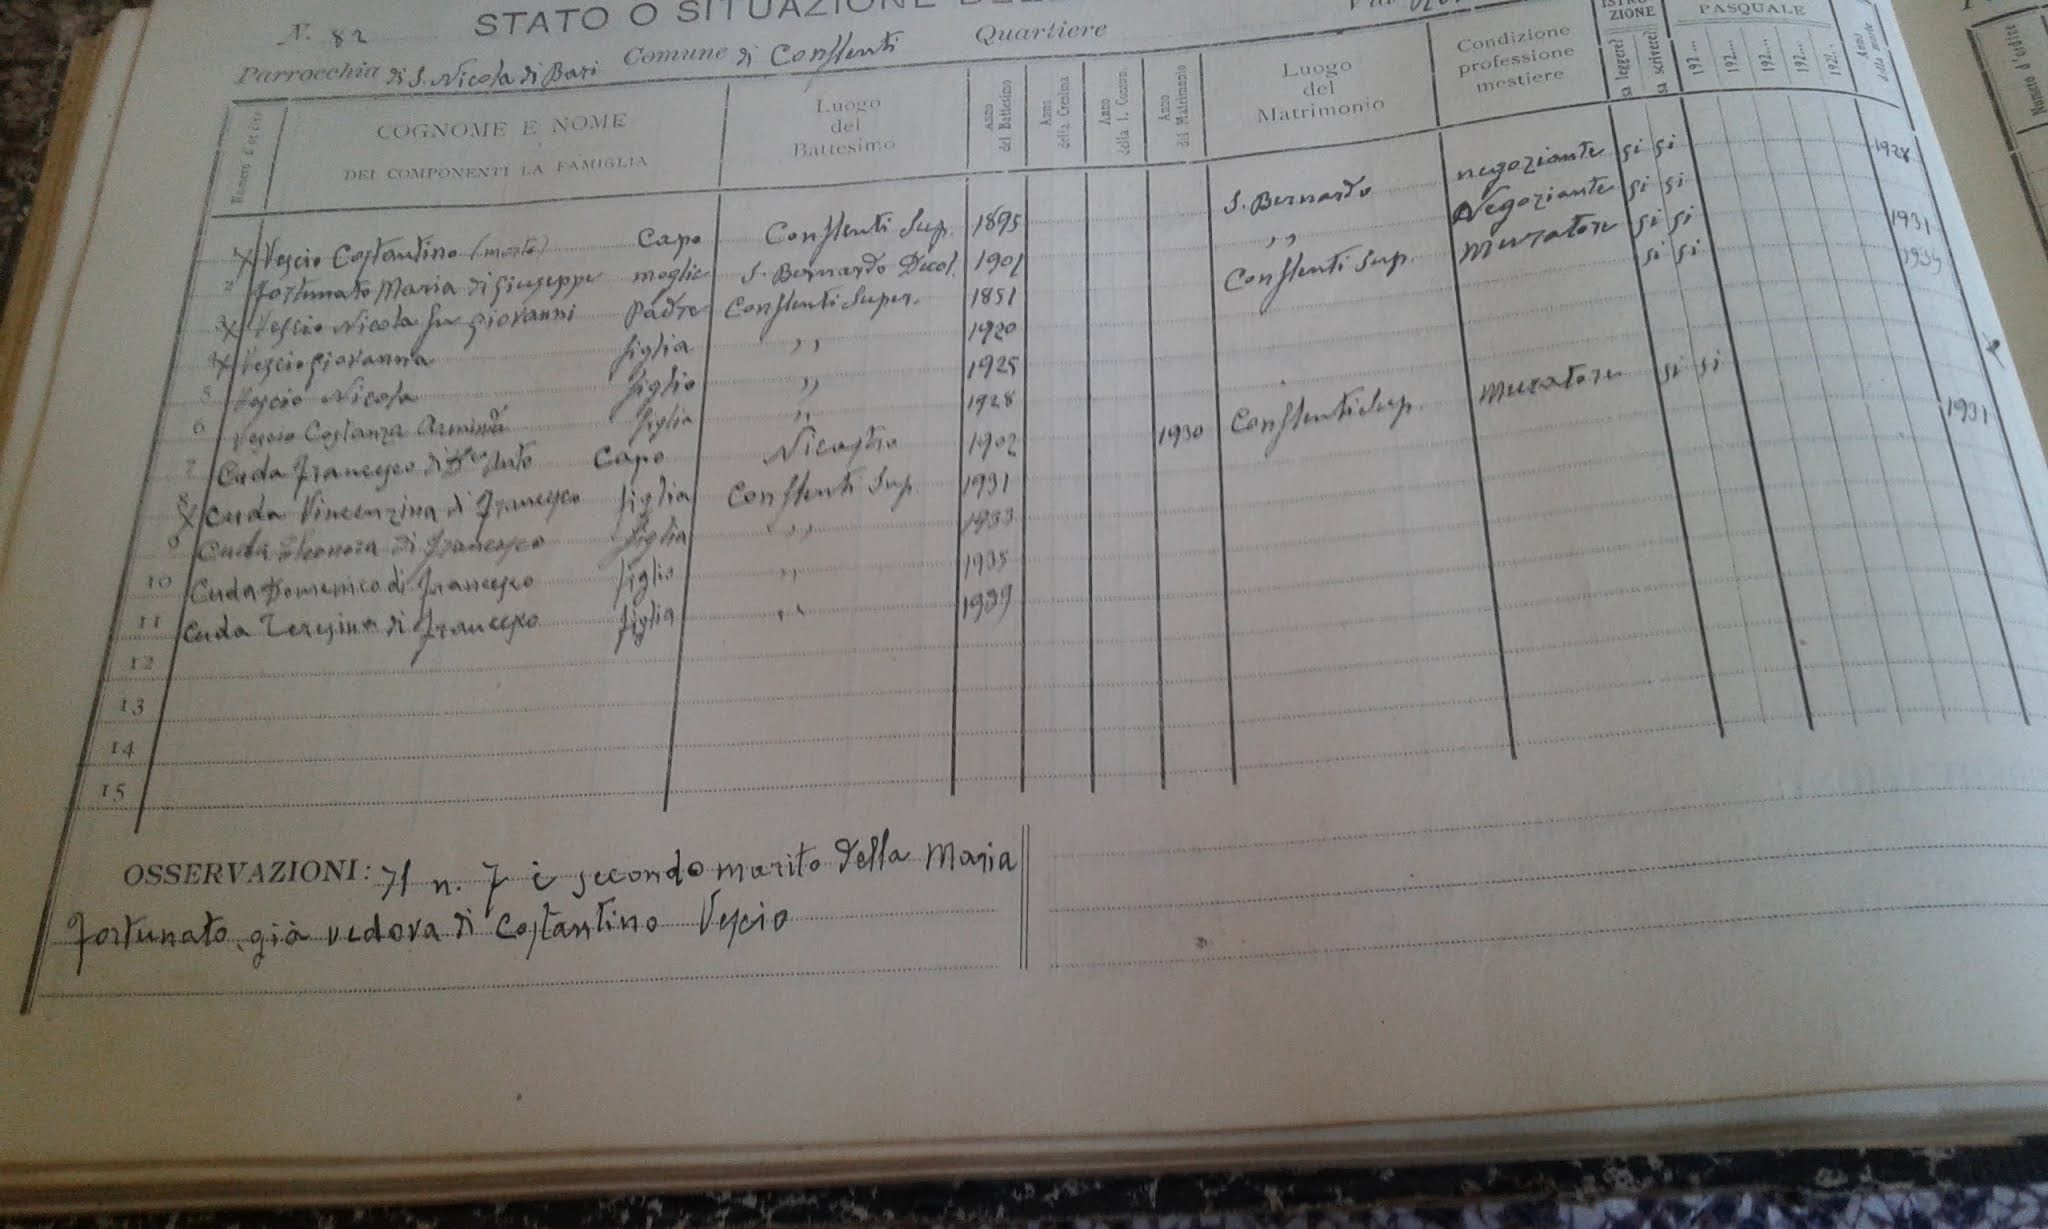 N. 82 STATO O SITUAZIONE
Parrocchia di S. Nicola di Bari Comune di Conflenti Quartiere
Numero d'ordine
COGNOME E NOME
DEI COMPONENTI LA FAMIGLIA
Luogo
del
Battesimo
Anno
del Battesimo
Anni
della Cresima
Anno
della 1. Comun.
Anno
del Matrimonio
Luogo
del
Matrimonio
Condizione
professione
mestiere
ISTRU-
ZIONE
sa leggere?
sa scrivere?
PASQUALE
192... 192... 192... 192... 192...
Anni
della morte
Numero d'ordine
Vescio Costantino (morto) Capo Conflenti Sup. 1895 S. Bernardo negoziante si si 1928
2 Fortunato Maria di Giuseppe moglie S. Bernardo Decol. 1901 ,, Negoziante si si
3 Vescio Nicola fu Giovanni Padre Conflenti Super. 1851 Conflenti Sup. Muratore si si 1931
4 Vescio Giovanna figlia ,, 1920 si si
5 Vescio Nicola figlio ,, 1925
6 Vescio Costanza figlia ,, 1928
7 Cuda Francesco di Capo Nicastro 1902 1930 Conflenti Sup. Muratore si si
8 Cuda Vincenzina di Francesco figlia Conflenti Sup. 1931 1931
9 Cuda Eleonora di Francesco figlia ,, 1933
10 Cuda Domenico di Francesco figlio ,, 1935
11 Cuda Teresina di Francesco figlia ,, 1939
12
13
14
15
OSSERVAZIONI: Il n. 7 è secondo marito della Maria
Fortunato, già vedova di Costantino Vescio